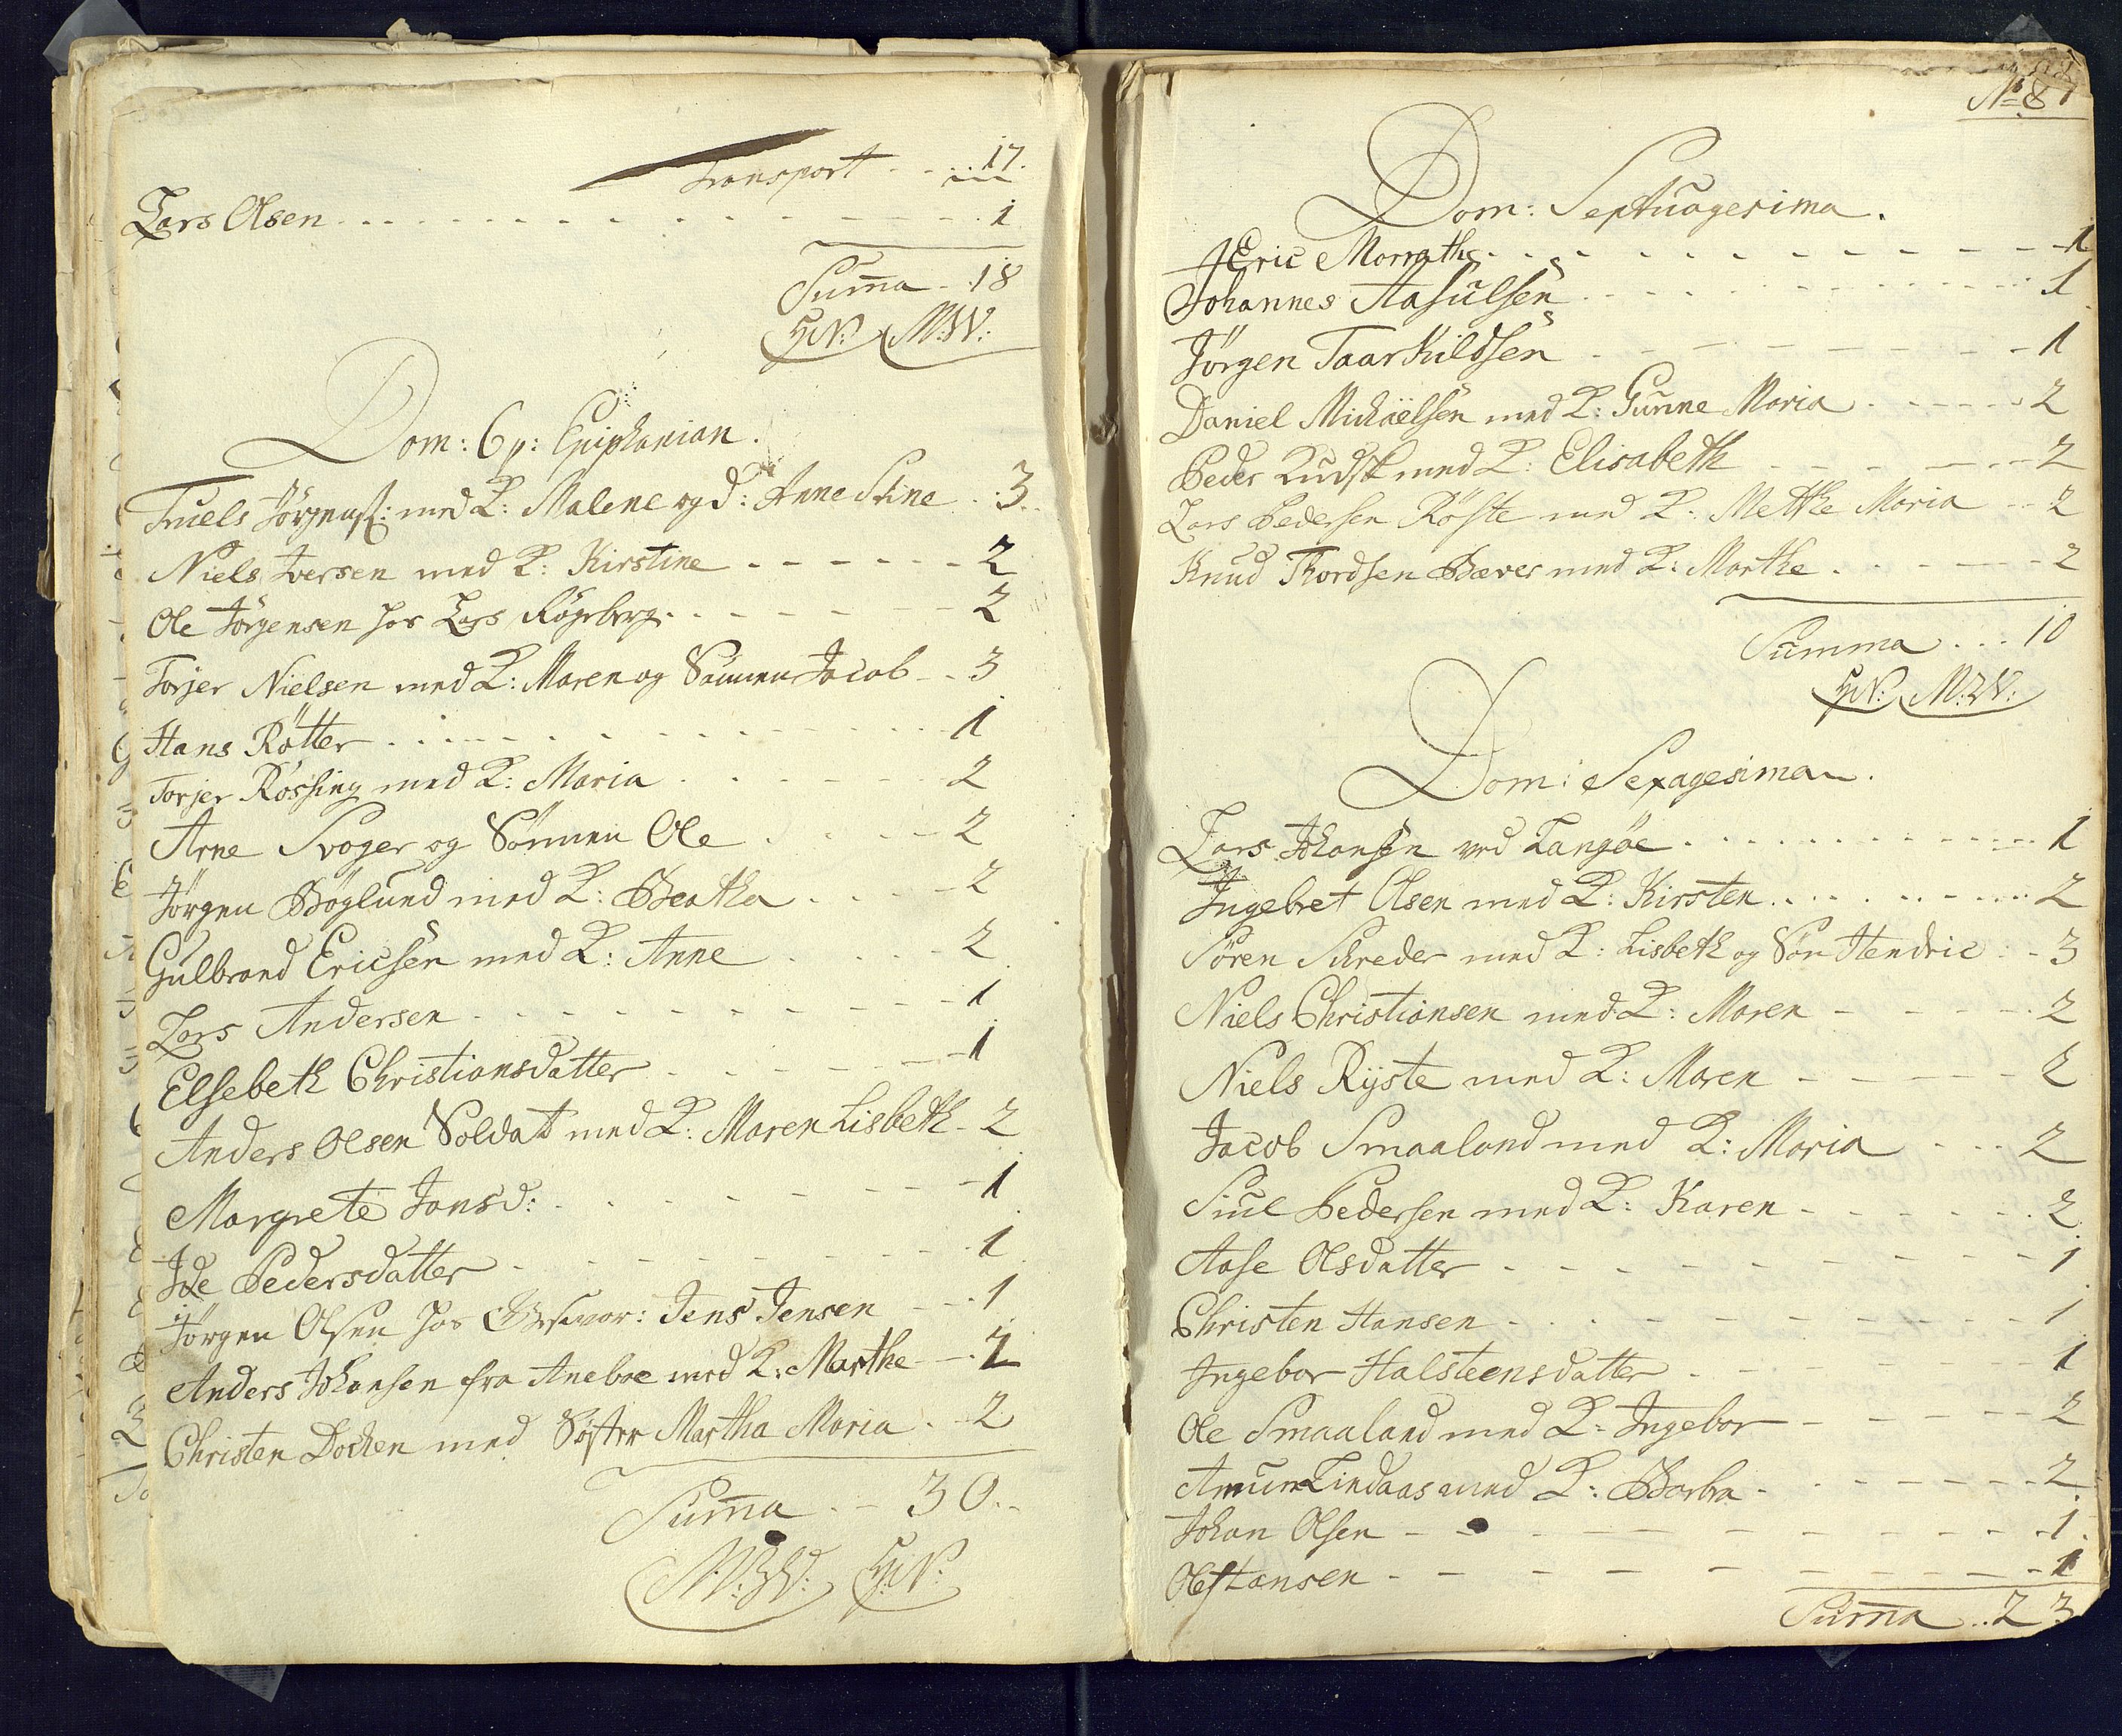 Transport - - - 17.
Lars Olsen - - - 1
Sum̄a - 18
H:N: M:W:
Dom: 6 p: Epiphanian.
Truels Jörgens: med K: Malene og d: Anne Stine - 3
Niels Iversen med K: Kirstine - - - 2
Ole Jörgensen hos Lars Rögeberg - - - 2
Torjer Nielsen med K: Maren og Sönnen Jacob - - 3
Hans Rötter - - - 1
Torjer Rössing med K: Maria - - - 2
Arne Svager og Sönnen Ole - - - 2
Jörgen Böglund med K: Beatha - - - 2
Gulbrand Ericsen med K: Anne - - - 2
Lars Andersen - - - 1
Elsebeth Christiansdatter - - - 1
Anders Olsen Soldat med K: Maren Lisbeth - 2
Margrete Jansd: - - - 1
Ide Pedersdatter - - - 1
Jörgen Olsen hos Jens Jensen - - - 1
Anders Johansen fra Aneboe med K: Marthe - - 2
Christen Docken med Söster Martha Maria - 2
Sum̄a - - 30 - -
M:W: H:N:
No 8
Dom: Septuagesima.
Eric Morrath - - - 1
Johannes Aasulsen - - - 1
Jörgen Taarkildsen - - - 1
Daniel Michäelsen med K: Gunne Maria - - - 2
Peder med K: Elisabeth - - - 2
Lars Pedersen Röste med K: Methe Maria - - 2
Knud Thordsen Bæver med K: Marthe - - - 2
Summa - - - 10
H:N: M:W:
Dom: Sexagesima.
Lars Johansen ved Langöe - - - 1
Ingebret Olsen med K: Kirsten - - - 2
Sören Schreder med K: Lisbeth og Sön Hendric - - 3
Niels Christiansen med K: Maren - - - 2
Niels Ryste med K: Maren - - - 2
Jacob Smaaland med K: Maria - - - 2
Siul Pedersen med K: Karen - - - 2
Aase Olsdatter - - - 1
Christen Hansen - - - 1
Ingebor Halsteensdatter - - - 1
Ole Smaaland med K: Ingebor - - - 2
Amun Lindaas med K: Barbra - - - 2
Johan Olsen - - - 1
Ole Hansen - - - 1
Sum̄a - - 23